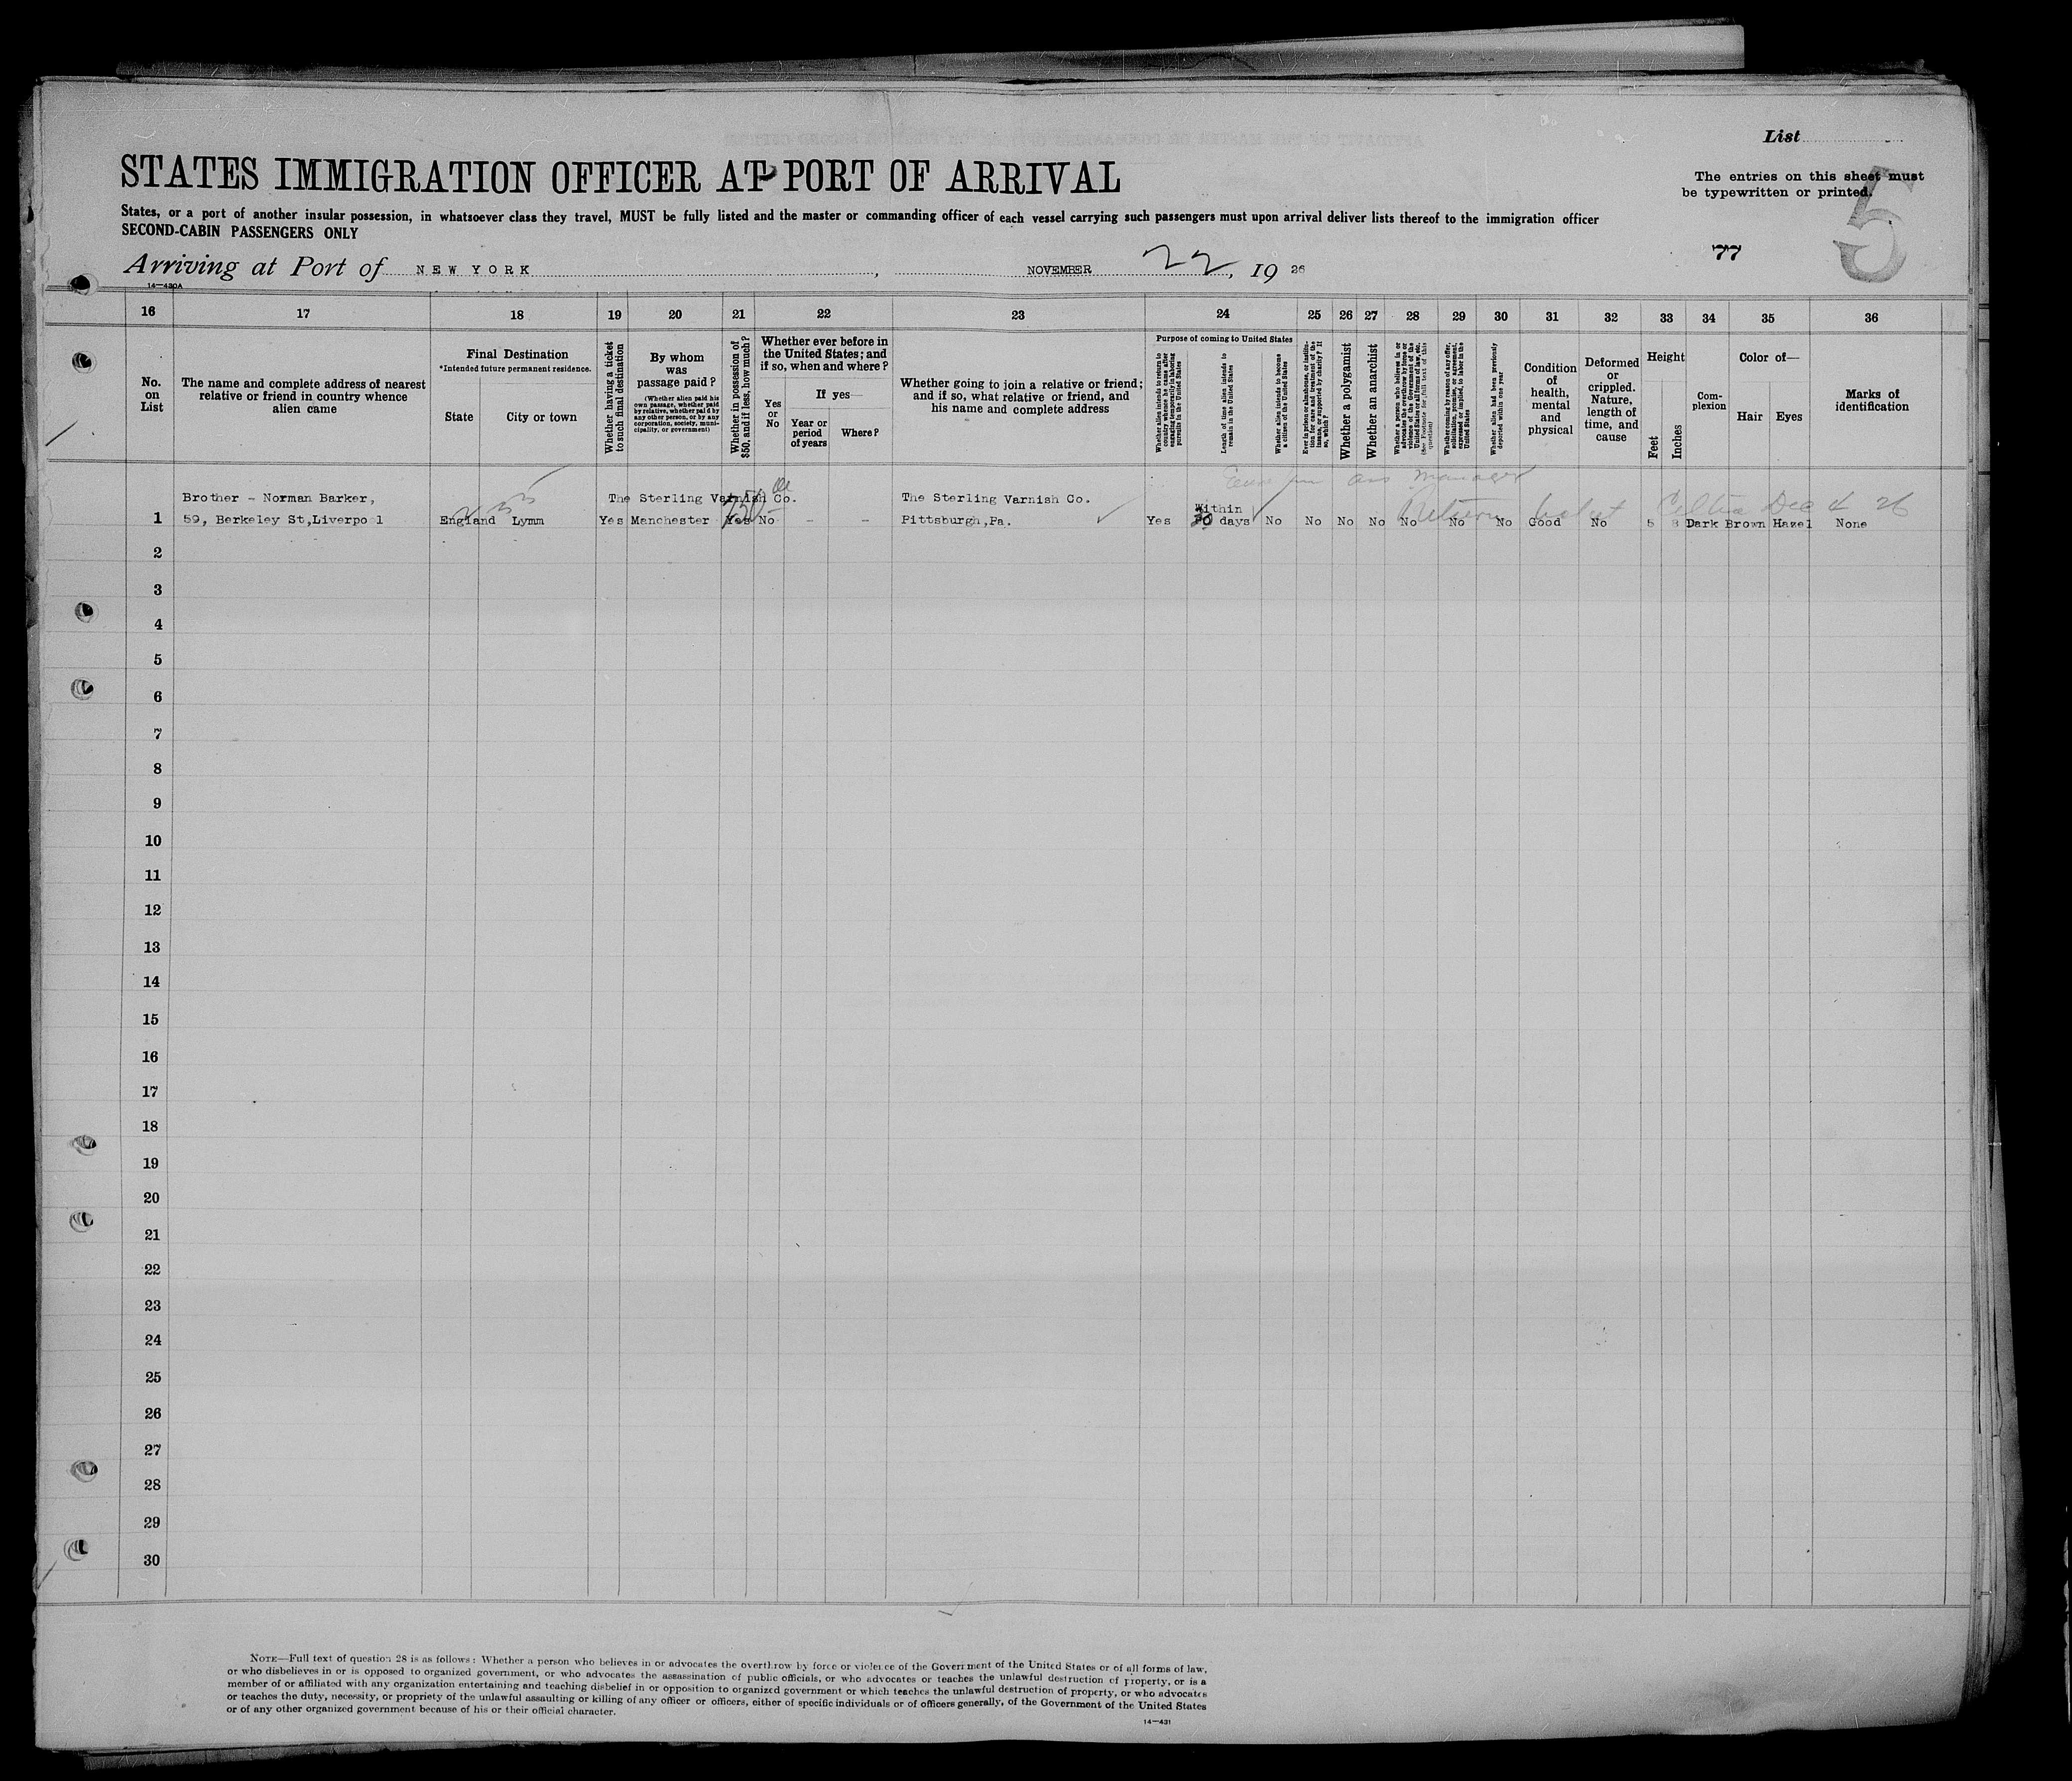 List
STATES IMMIGRATION OFFICER AT PORT OF ARRIVAL
The entries on this sheet must
be typewritten or printed.
5
States, or a port of another insular possession, in whatsoever class they travel, MUST be fully listed and the master or commanding officer of each vessel carrying such passengers must upon arrival deliver lists thereof to the immigration officer
SECOND-CABIN PASSENGERS ONLY
77
Arriving at Port of NEW YORK, NOVEMBER 22, 19 26
14—430A
16 17 18 19 20 21 22 23 24 25 26 27 28 29 30 31 32 33 34 35 36
No.
on
List
The name and complete address of nearest
relative or friend in country whence
alien came
Final Destination
*Intended future permanent residence.
State City or town
Whether having a ticket
to such final destination
By whom
was
passage paid?
(Whether alien paid his
own passage, whether paid
by relative, whether paid by
any other person, or by any
corporation, society, muni-
cipality, or government)
Whether in possession of
$50, and if less, how much?
Whether ever before in
the United States; and
if so, when and where?
Yes
or
No
If yes—
Year or
period
of years
Where?
Whether going to join a relative or friend;
and if so, what relative or friend, and
his name and complete address
Purpose of coming to United States
Whether alien intends to return to
country whence he came after
engaging temporarily in laboring
pursuits in the United States
Length of time alien intends to
remain in the United States
Whether alien intends to become
a citizen of the United States
Ever in prison or almshouse, or institu-
tion for care and treatment of the
insane, or supported by charity? If
so, which?
Whether a polygamist
Whether an anarchist
Whether a person who believes in or
advocates the overthrow by force or
violence of the Government of the
United States or all forms of law, etc.
(See Footnote for full text of this
question)
Whether coming by reason of any offer,
solicitation, promise, or agreement,
expressed or implied, to labor in the
United States
Whether alien had been previously
deported within one year
Condition
of
health,
mental
and
physical
Deformed
or
crippled.
Nature,
length of
time, and
cause
Height
Feet Inches
Com-
plexion
Color of—
Hair Eyes
Marks of
identification
manager
Brother - Norman Barker, The Sterling Varnish Co. The Sterling Varnish Co. Within Return Celtic Dec 4 26
1 59, Berkeley St,Liverpo l England Lymm Yes Manchester Yes No - - Pittsburgh,Pa. Yes 30 days No No No No No No No Good No 5 8 Dark Brown Hazel None
2
3
4
5
6
7
8
9
10
11
12
13
14
15
16
17
18
19
20
21
22
23
24
25
26
27
28
29
30
NOTE—Full text of question 28 is as follows: Whether a person who believes in or advocates the overthrow by force or violence of the Government of the United States or of all forms of law,
or who disbelieves in or is opposed to organized government, or who advocates the assassination of public officials, or who advocates or teaches the unlawful destruction of property, or is a
member of or affiliated with any organization entertaining and teaching disbelief in or opposition to organized government or which teaches the unlawful destruction of property, or who advocates
or teaches the duty, necessity, or propriety of the unlawful assaulting or killing of any officer or officers, either of specific individuals or of officers generally, of the Government of the United States
or of any other organized government because of his or their official character.
14—431